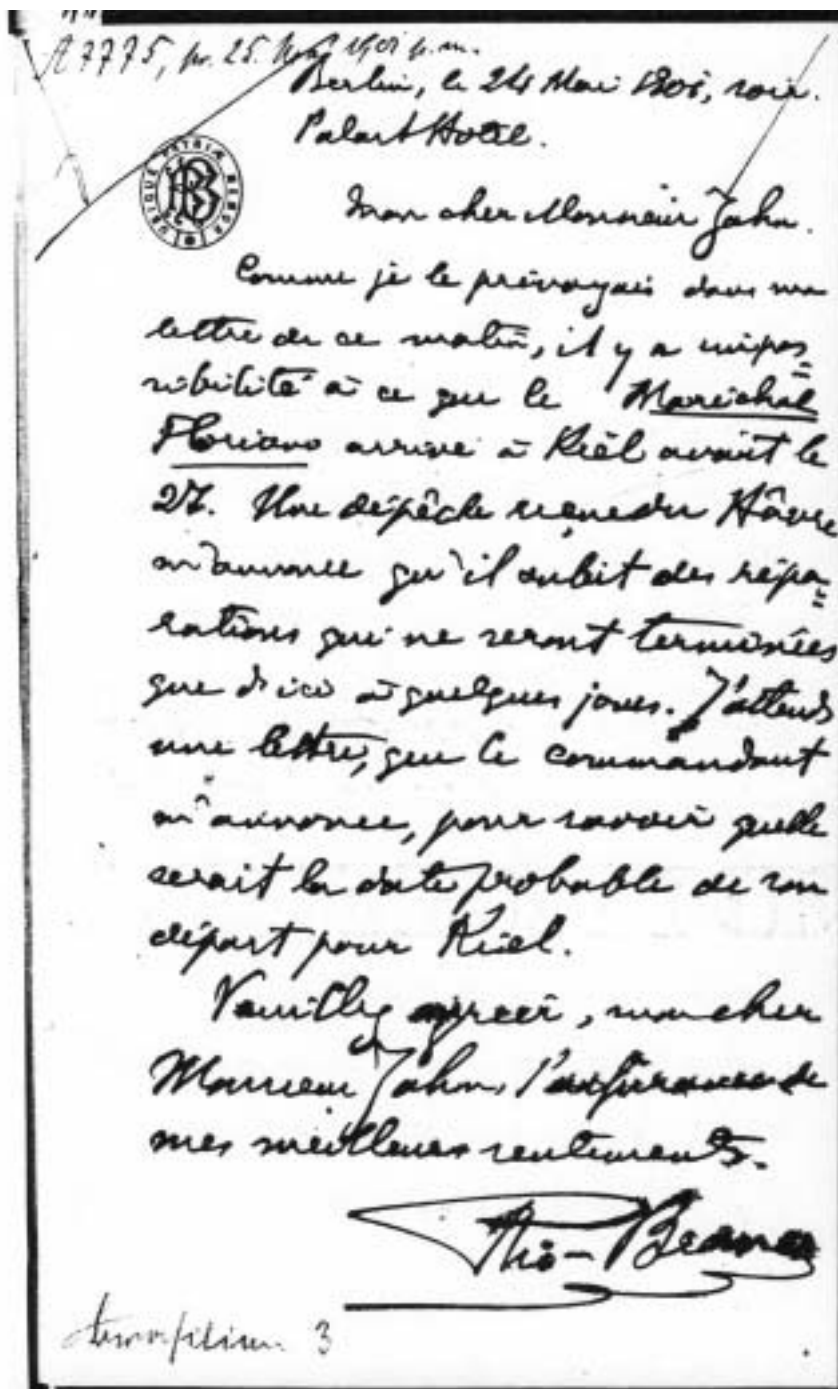 A 7775, pr. 25. 1901 p.m.
Berlin, le 24 Mai 1901, soir.
Palast Hotel.
UBIQUE PATRIÆ MEMOR
Mon cher Monsieur Jahn.
Comme je le prévoyais dans ma
lettre de ce matin, il y a impos=
sibilité à ce que le Maréchal
Floriano arrive à Kiél avant le
27. Une dépêche reçue du Hâvre
m'annonce qu'il subit des répa=
rations qui ne seront terminées
que d'ici à quelques jours. J'attends
une lettre, que le commandant
m'annonce, pour savoir quelle
serait la date probable de son
départ pour Kiel.
Veuillez agréer, mon cher
Monsieur Jahn, l'assurance de
mes meilleurs sentiments.
Rio-Branco
3